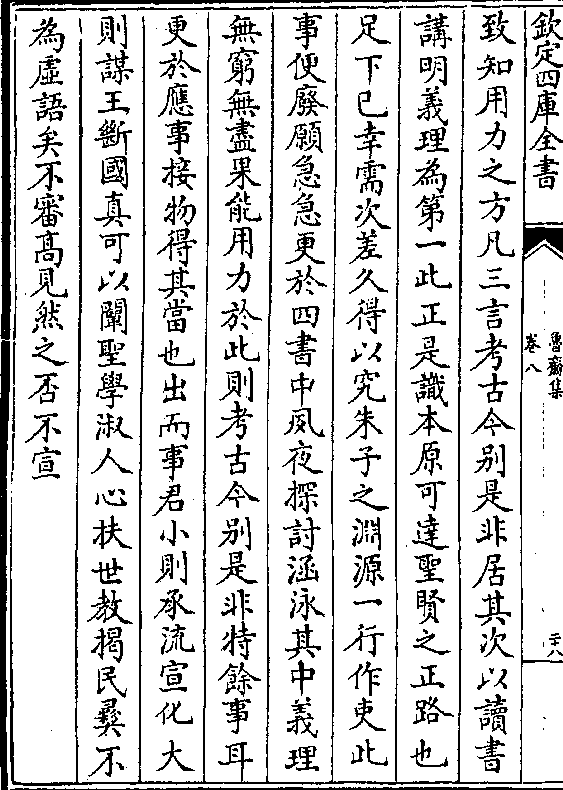 欽定四庫全書
魯齋集
卷八
二十八
致知用力之方凡三言考古今别是非居其次以讀書
講明義理為第一此正是識本原可達聖賢之正路也
足下已幸需次差久得以究朱子之淵源一行作吏此
事便廢願急急更於四書中夙夜探討涵泳其中義理
無窮無盡果能用力於此則考古今别是非特餘事耳
更於應事接物得其當也出而事君小則承流宣化大
則謀王斷國真可以闡聖學淑人心扶世教揭民彛不
為虚語矣不審髙見然之否不宣